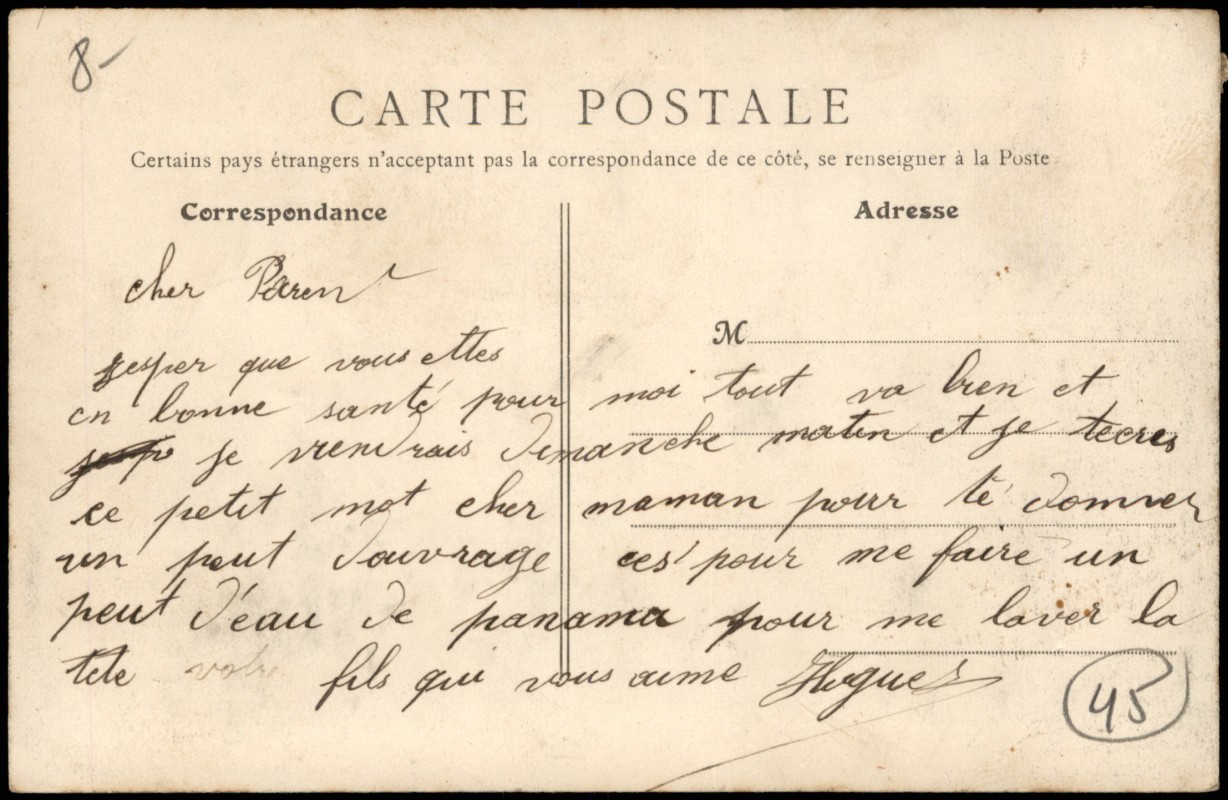 8-
CARTE POSTALE
Certains pays étrangers n'acceptant pas la correspondance de ce côté, se renseigner à la Poste
Correspondance
Adresse
cher Parent
M
jesper que vous ettes
en bonne santé pour moi tout va bien et
je viendrais dimanche matin et je tecres
ce petit mot cher maman pour té donner
un peut douvrage ces pour me faire un
peut d'eau de panama pour me laver la
tete votre fils qui vous aime Hugues
45